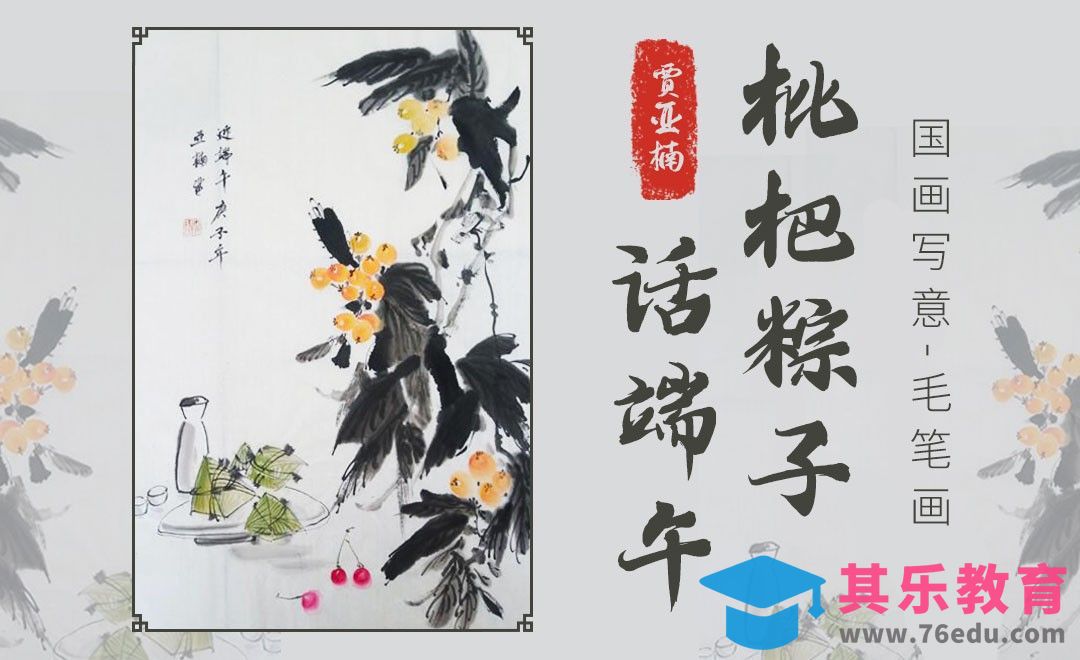 国画写意-毛笔画
枇杷粽子
话端午
贾亚楠
近端午庚子年
亚楠
其乐教育
www.76edu.com